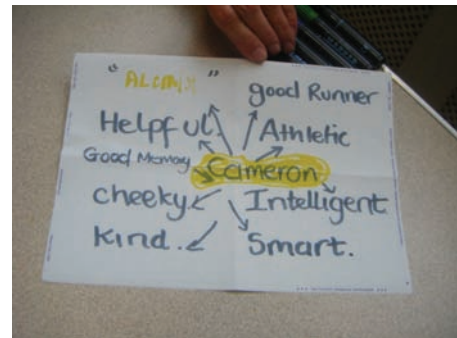 good Runner
Helpful.
Athletic
Good Memory
Cameron
cheeky.
Intelligent
Kind.
Smart.